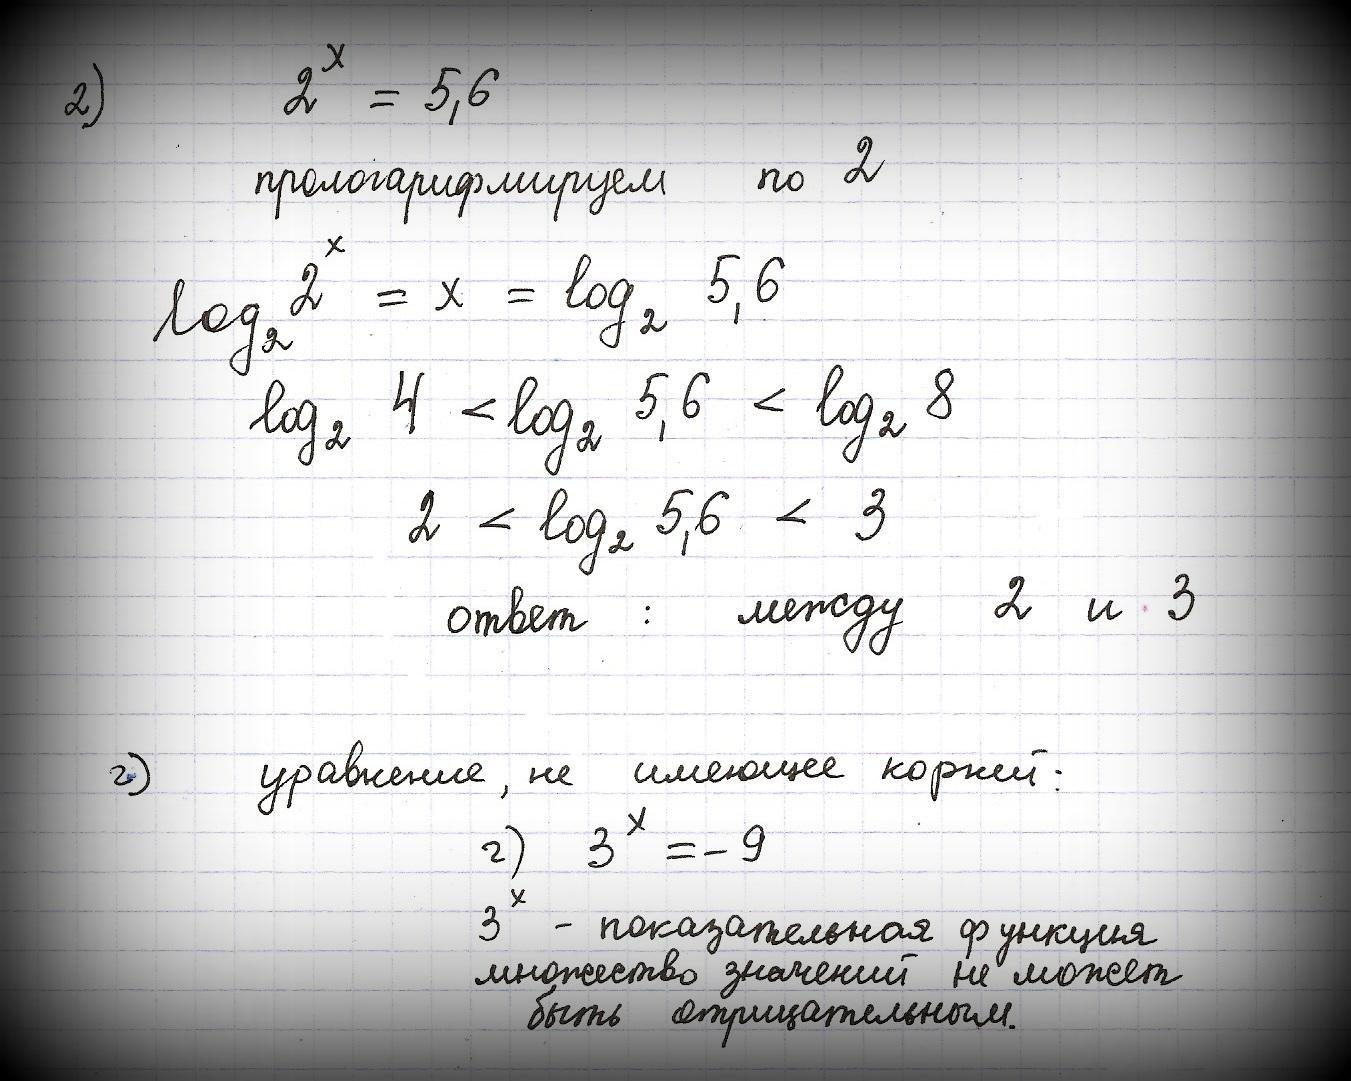 2) 2^x = 5,6
прологарифмируем по 2
log₂ 2^x = x = log₂ 5,6
log₂ 4 < log₂ 5,6 < log₂ 8
2 < log₂ 5,6 < 3
ответ : между 2 и 3
г) уравнение, не имеющее корней:
г) 3^x = - 9
3^x - показательная функция
множество значений не может
быть отрицательным.